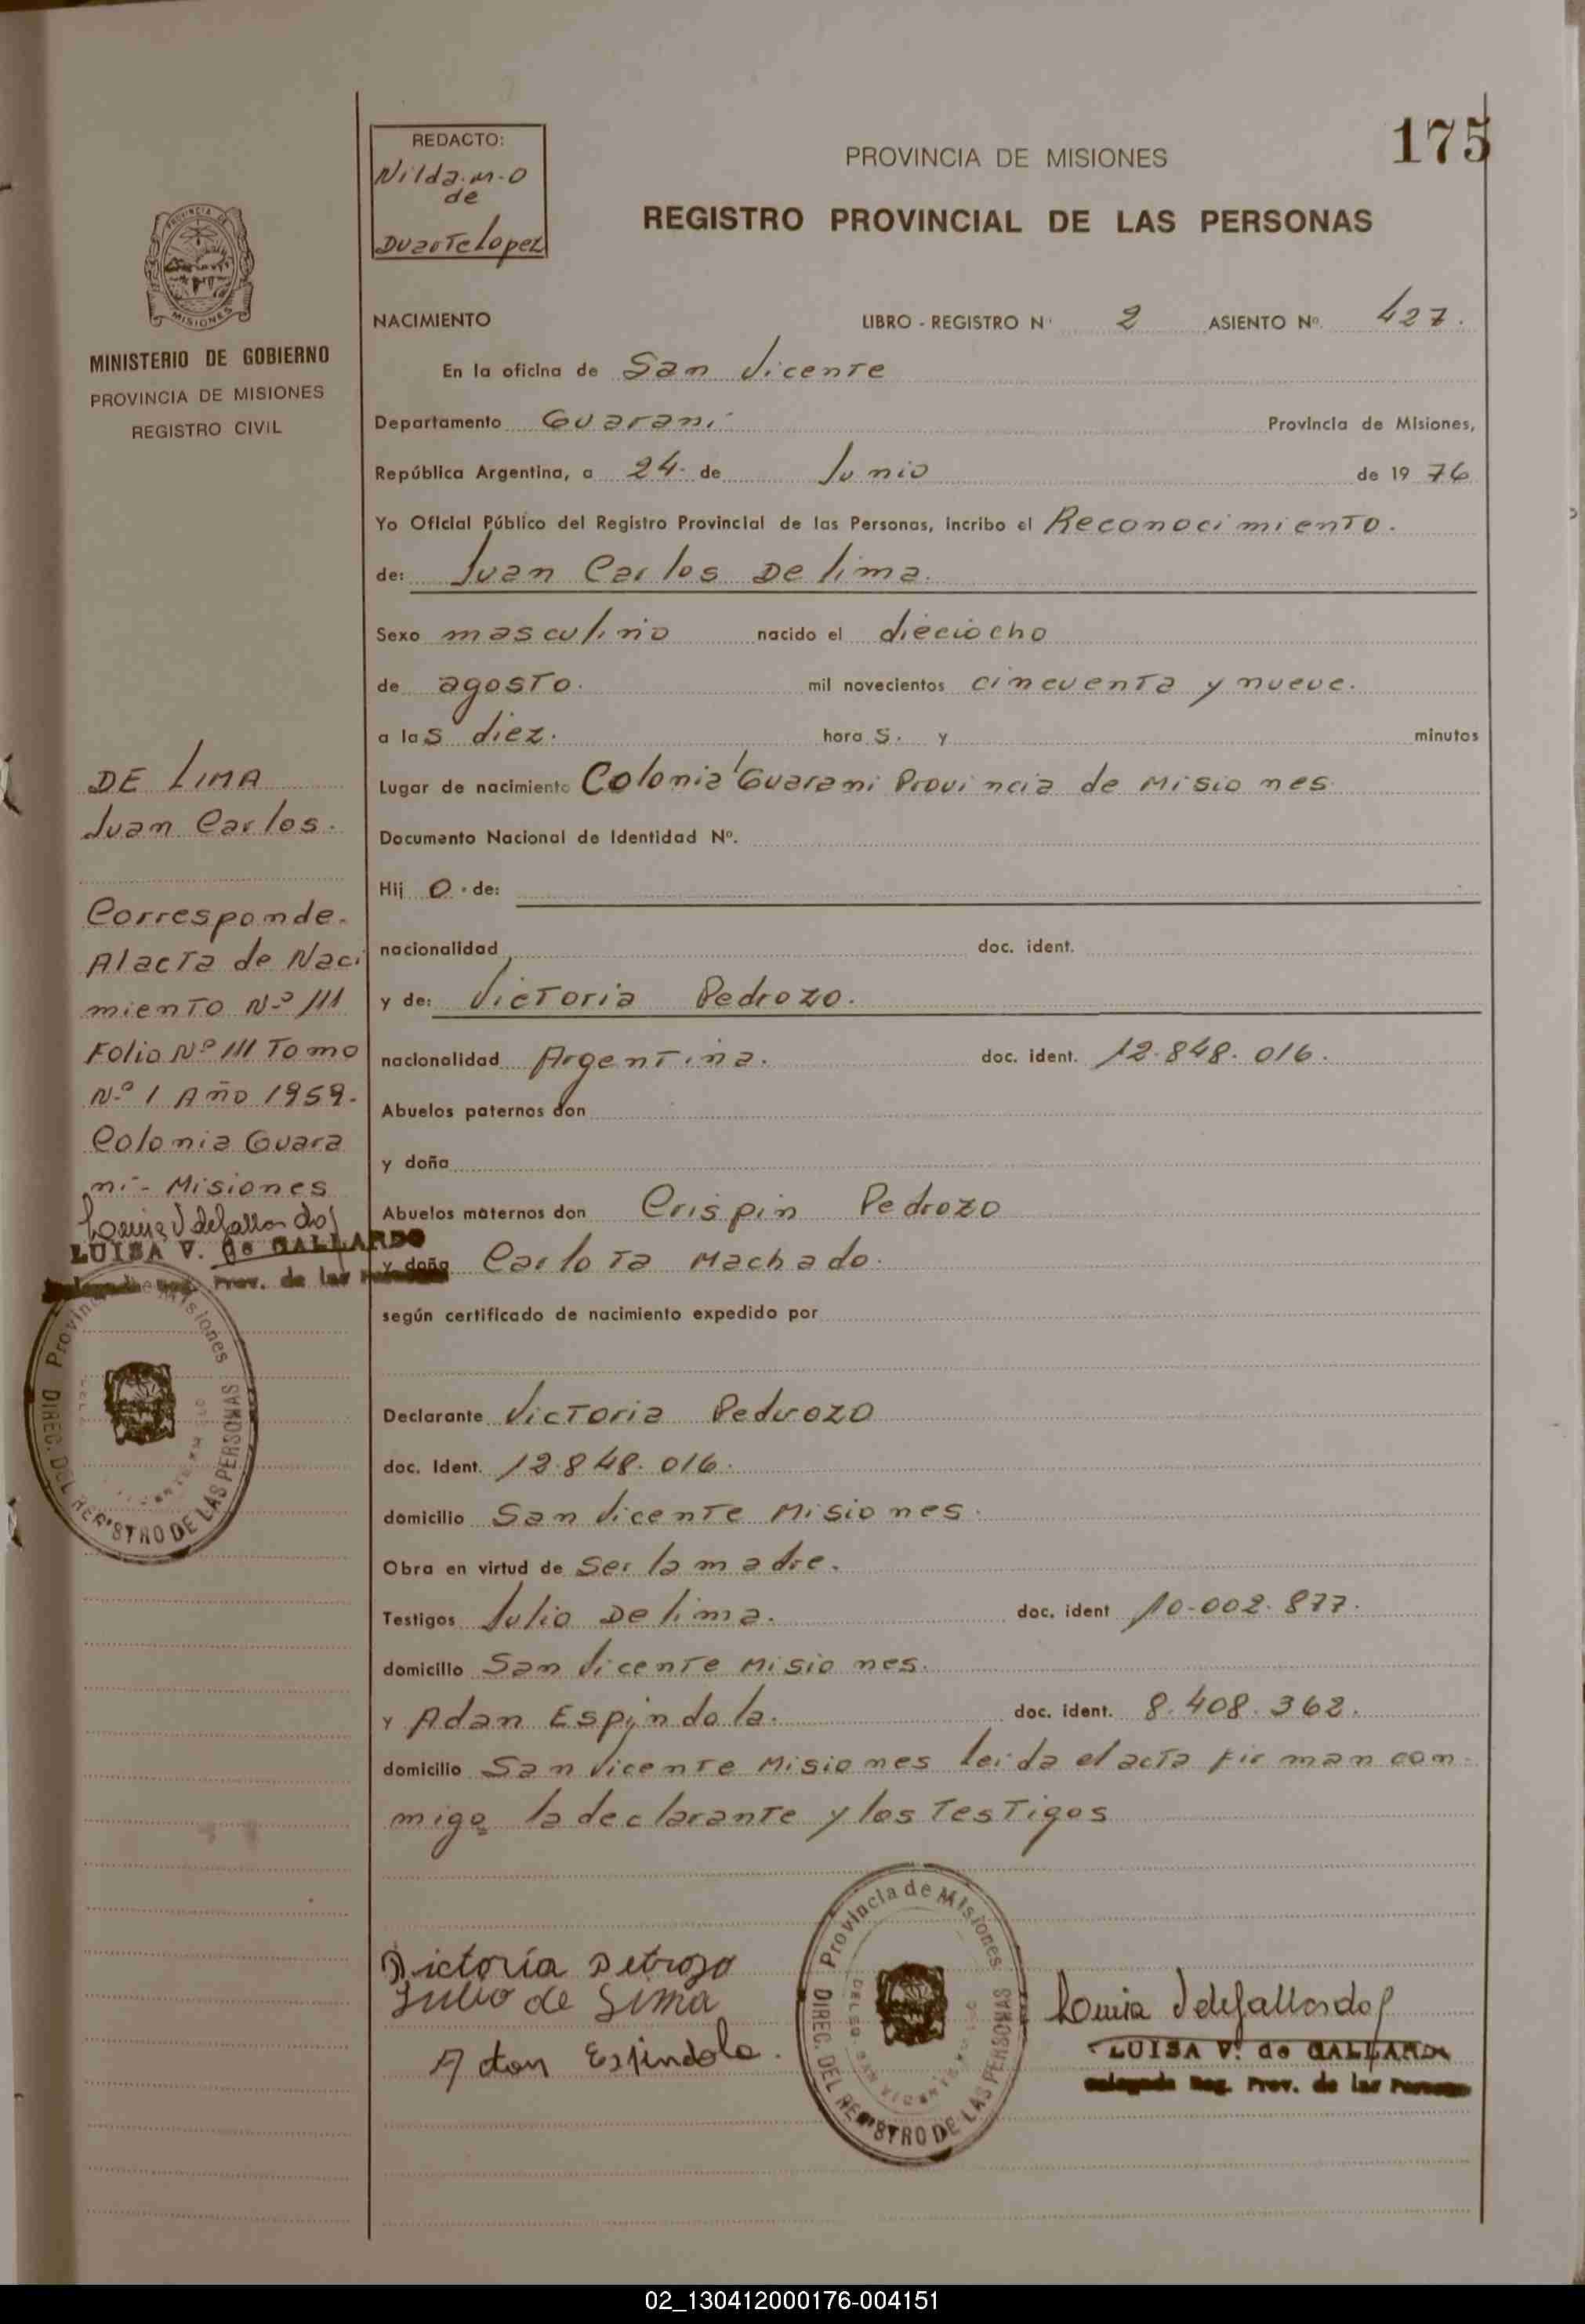 175
REDACTO:
Nilda.M.O
de
Duarte Lopez
PROVINCIA DE MISIONES
REGISTRO PROVINCIAL DE LAS PERSONAS
PROVINCIA DE
MISIONES
MINISTERIO DE GOBIERNO
PROVINCIA DE MISIONES
REGISTRO CIVIL
NACIMIENTO LIBRO - REGISTRO Nº 2 ASIENTO Nº. 427.
En la oficina de San Vicente
Departamento Guaraní Provincia de Misiones,
República Argentina, a 24. de Junio de 1976
Yo Oficial Público del Registro Provincial de las Personas, incribo el Reconocimiento.
de: Juan Carlos De lima.
Sexo masculino nacido el dieciocho
de agosto. mil novecientos cincuenta y nueve.
a las diez. horas. y minutos
Lugar de nacimiento Colonia Guarani Provincia de Misiones.
Documento Nacional de Identidad Nº.
Hijo. de:
nacionalidad doc. ident.
y de: Victoria Pedrozo.
nacionalidad Argentina. doc. ident. 12.848.016.
Abuelos paternos don
y doña
Abuelos maternos don Crispin Pedrozo
y doña Carlota Machado.
según certificado de nacimiento expedido por
Declarante Victoria Pedrozo
doc. Ident. 12.848.016.
domicilio San Vicente Misiones.
Obra en virtud de ser la madre.
Testigos Julio De lima. doc. ident 10.002.877.
domicilio San Vicente Misiones.
y Adan Espindola. doc. ident. 8.408.362.
domicilio San Vicente Misiones leida el acta firman con-
migo la declarante y los testigos
DE LIMA
Juan Carlos.
Corresponde.
Al acta de Naci
miento Nº 111
Folio Nº 111 Tomo
Nº 1 Año 1959.
Colonia Guara
ní- Misiones
LUISA V. de GALLARDO
Prov. de las
Provincia de Misiones
DIREC. DEL REGISTRO DE LAS PERSONAS
Victoria Petrozo
Julio de Lima
Adan Espindola.
Provincia de Misiones
DELEG. SAN VICENTE
DIREC. DEL REGISTRO DE LAS PERSONAS
LUISA V. de GALLARDO
Delegada Reg. Prov. de las Personas
02_130412000176-004151